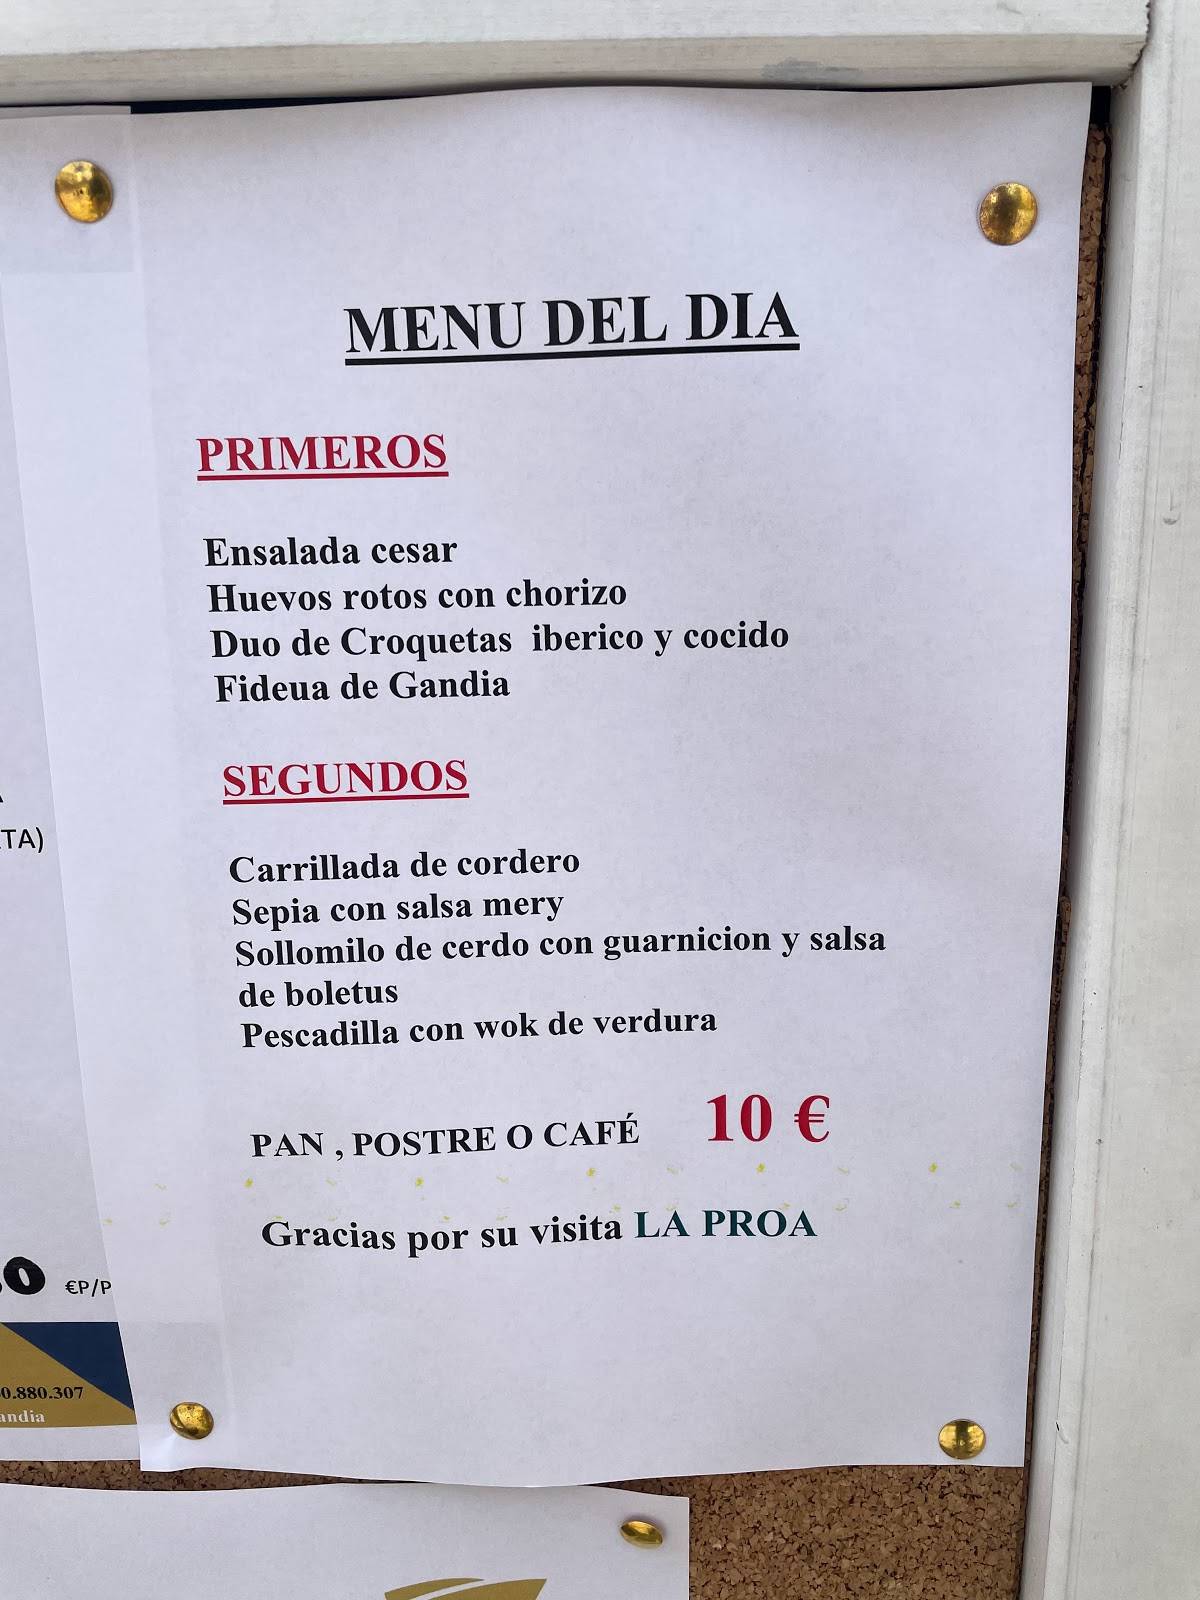 MENU DEL DIA
PRIMEROS
Ensalada cesar
Huevos rotos con chorizo
Duo de Croquetas iberico y cocido
Fideua de Gandia
SEGUNDOS
Carrillada de cordero
Sepia con salsa mery
Sollomilo de cerdo con guarnicion y salsa
de boletus
Pescadilla con wok de verdura
PAN , POSTRE O CAFÉ 10 €
Gracias por su visita LA PROA
TA)
0 €P/P
0.880.307
andia